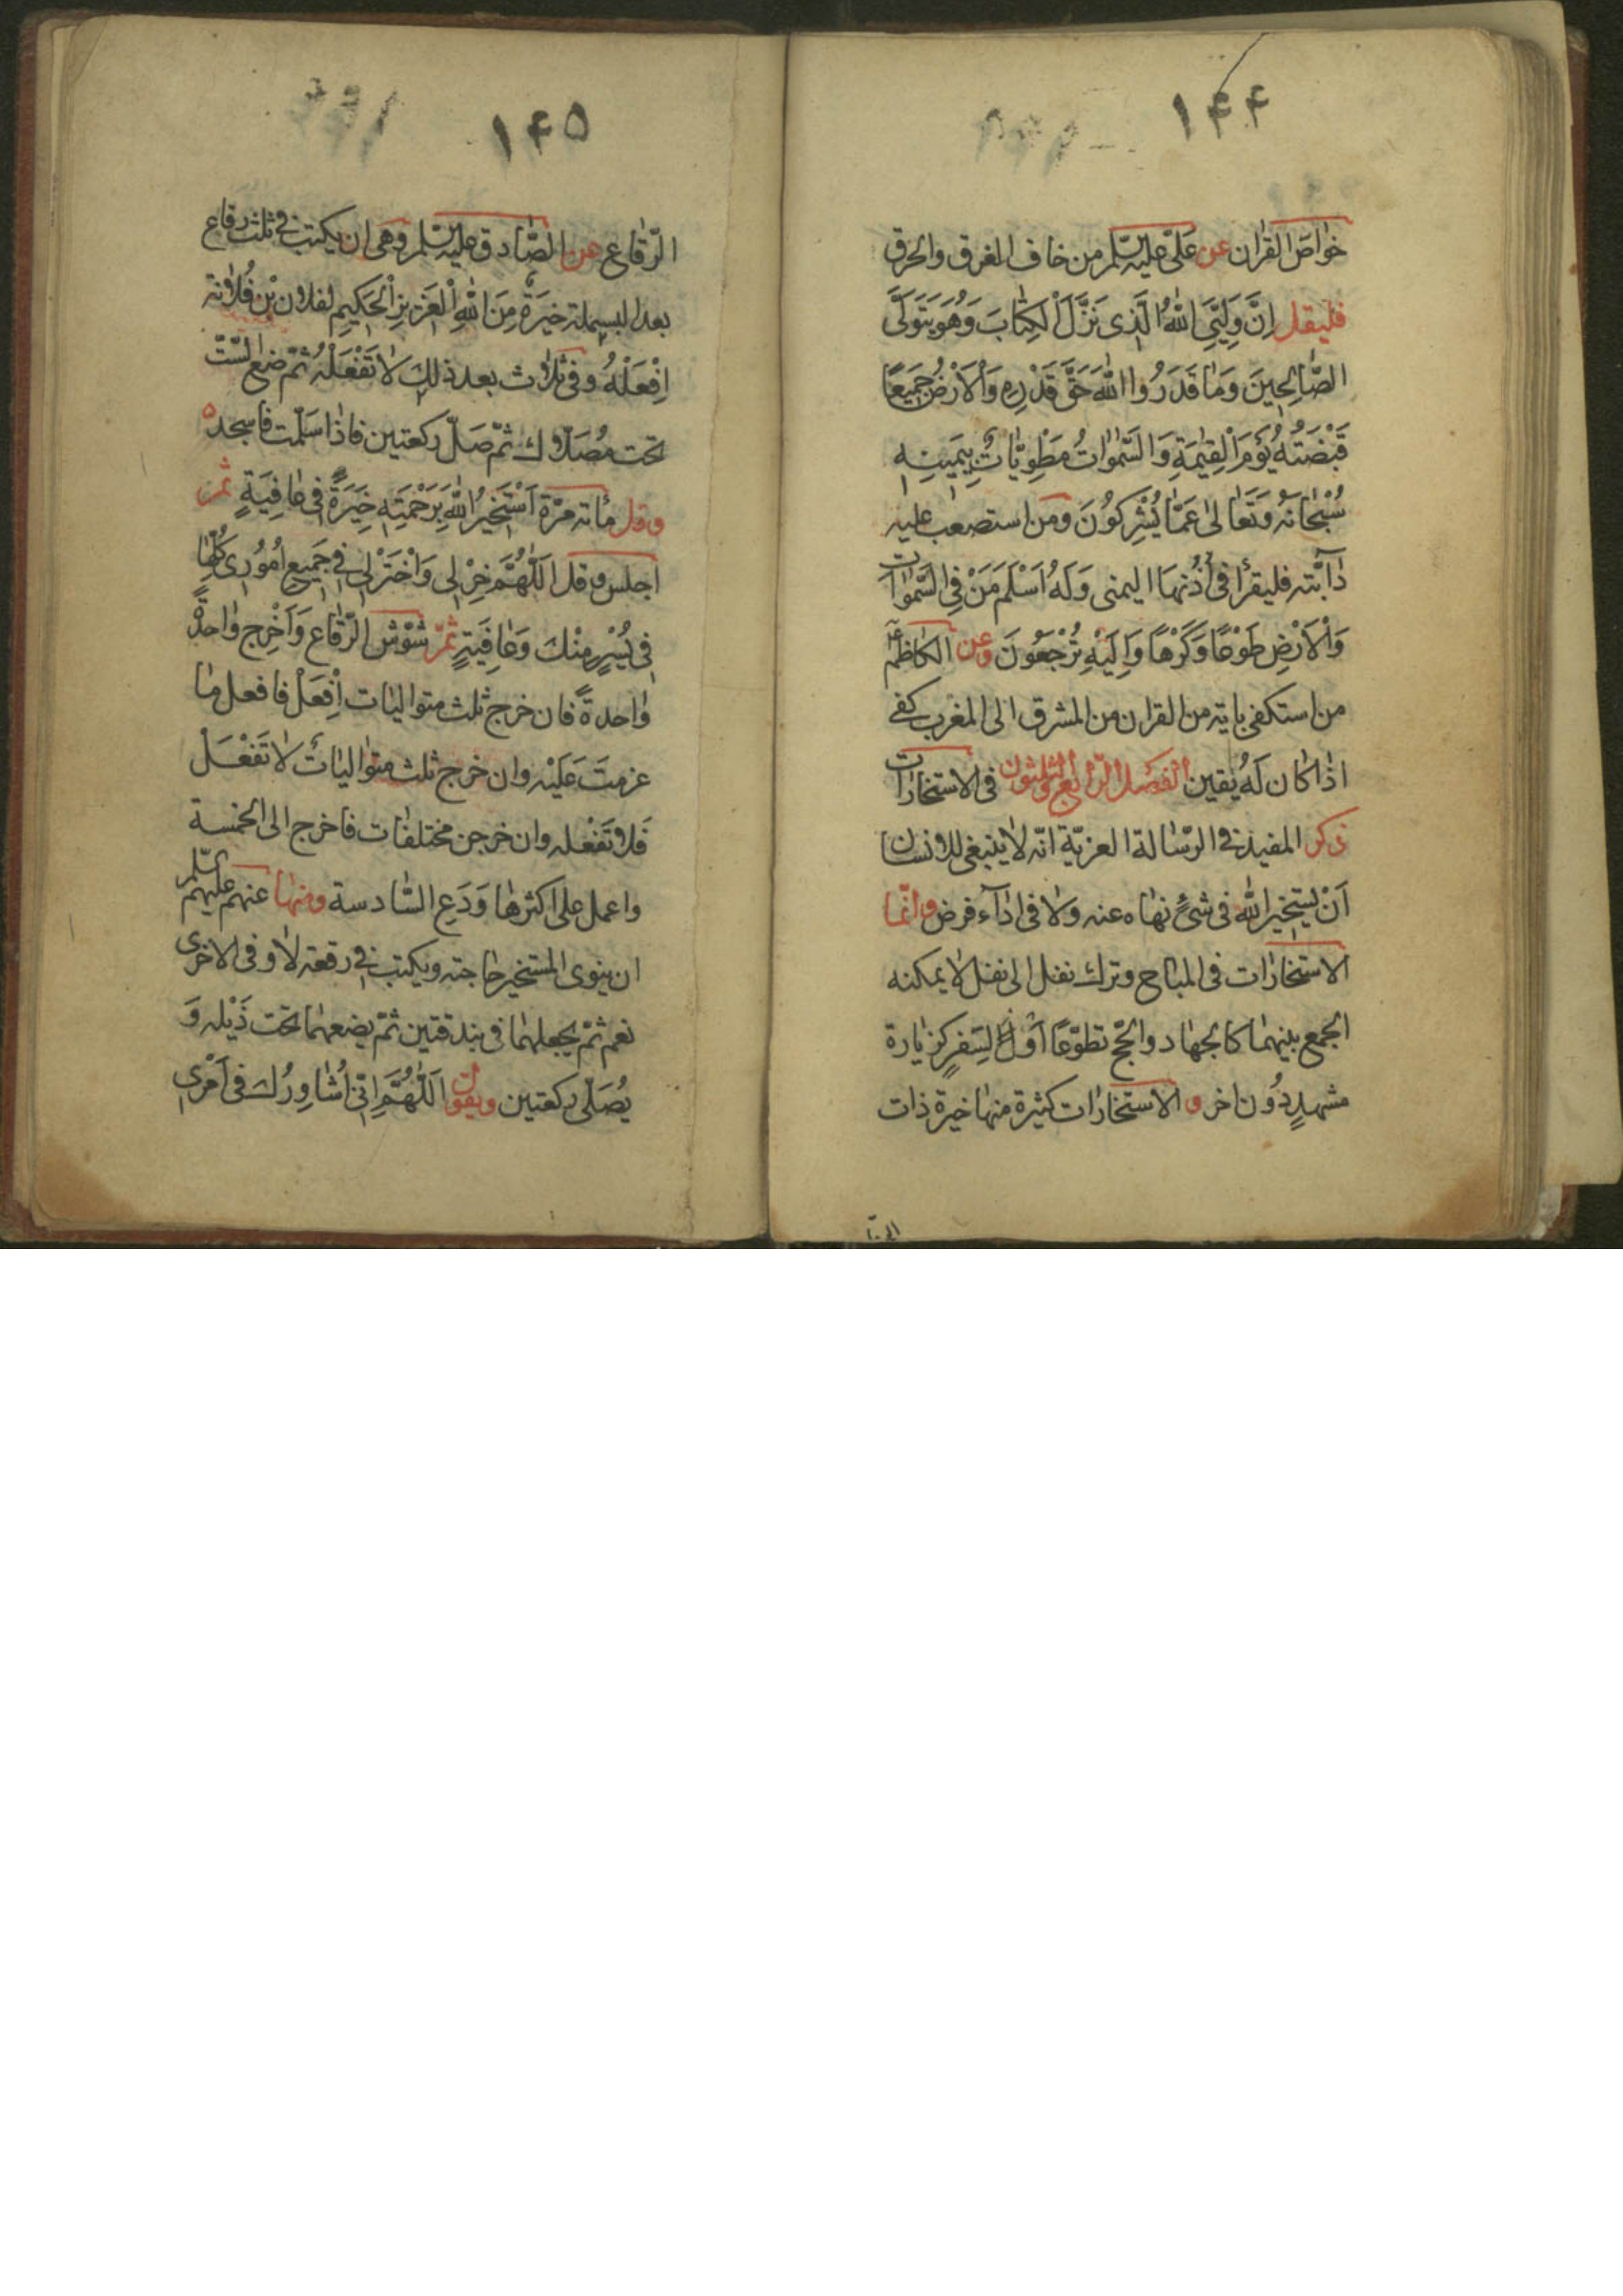 ۱۴۴
خواصّ القران عن عَلیّ علیه السّلم من خاف الغرق والحرق
فلیقل اِنَّ وَلِیِّیَ اللهُ الَّذی نَزَّلَ الْکِتابَ وَهُوَ یَتَوَلَّی
الصّالِحینَ وَمٰا قَدَرُوا اللهَ حَقَّ قَدْرِهِ وَالْاَرْضُ جَمیعًا
قَبْضَتُهُ یَوْمَ الْقِیٰمَةِ وَالسَّمٰوٰاتُ مَطْوِیّٰاتٌ بِیَمینِهِ
سُبْحٰانَهُ وَتَعٰالیٰ عَمّٰا یُشْرِکُونَ ومن استصعب علیه
دٰابّته فلیقرأ فی اُذُنهَا الیمنی وَلَهُ اَسْلَمَ مَنْ فِی السَّمٰوٰاتِ
وَالْاَرْضِ طَوْعًا وَکَرْهًا وَاِلَیْهِ تُرْجَعُونَ وعن الکاظم
من استکفی بایة من القران من المشرق الی المغرب کفی
اذا کان لَهُ یقین الفصل الرّابع والثلثون فی الاستخارات
ذکر المفید فی الرّسٰالة العزیّة انّه لٰا ینبغی للانسان
اَنْ یستخیر الله فی شیءٍ نهٰاه عنه ولا فی ادٰآء فرض وانّما
الاستخارٰات فی المباح وترك نفل الی نفل لا یمکنه
الجمع بینهمٰا کالجهٰاد والحّج تطوّعًا اَوْ لِسَفرٍ کزیٰارة
مشهدٍ دُون اخر و الاستخارٰات کثیرة منهٰا خیرة ذات
الر
۱۴۵
الرّقاع عن الصّٰادق علیه السّلم وهی ان یکتب فی ثلث رقاع
بعد البسملة خِیَرَةٌ مِنَ اللهِ الْعَزیزِ الْحَکیمِ لفلان بْنِ فُلانة
اِفْعَلْهُ وفی ثلاث بعد ذلك لٰا تَفْعَلْهُ ثمّ ضع السّتّ
تحت مُصَلّاك ثمّ صَلّ رکعتین فاذٰا سَلّمت فاسجد
وقل مأته مرّة اَسْتَخیرُ اللهَ بِرَحْمَتِهِ خِیَرَةً فی عٰافِیَةٍ ثمّ
اجلس وقل اَللّٰهُمَّ خِرْ لی وَاخْتَرْ لی فی جَمیعِ اُمُوری کُلِّهٰا
فی یُسْرٍ مِنْكَ وَعٰافِیَةٍ ثمّ شوّش الرّقٰاع وَاَخْرِج وٰاحدةً
وٰاحدةً فان خرج ثلث متوالیٰات اِفْعَلْ فافعل مٰا
عزمتَ عَلَیْه وان خرج ثلث متوٰالیٰات لٰا تَفْعَلْ
فَلا تَفْعَله وان خرجن مختلفٰات فاخرج الی الخمسة
واعمل علی اکثرهٰا وَدَعِ السّٰادسة ومنهٰا عنهم علیهم السّلم
ان ینوی المستخیر حٰاجته ویکتب فی رقعة لٰا وفی الاخری
نعم ثمّ یجعلهمٰا فی بندقتین ثمّ یضعهمٰا تحت ذَیْله وَ
یُصَلّی رکعتین ویقول اَللّٰهُمَّ اِنّی اُشٰاوِرُكَ فی اَمْری